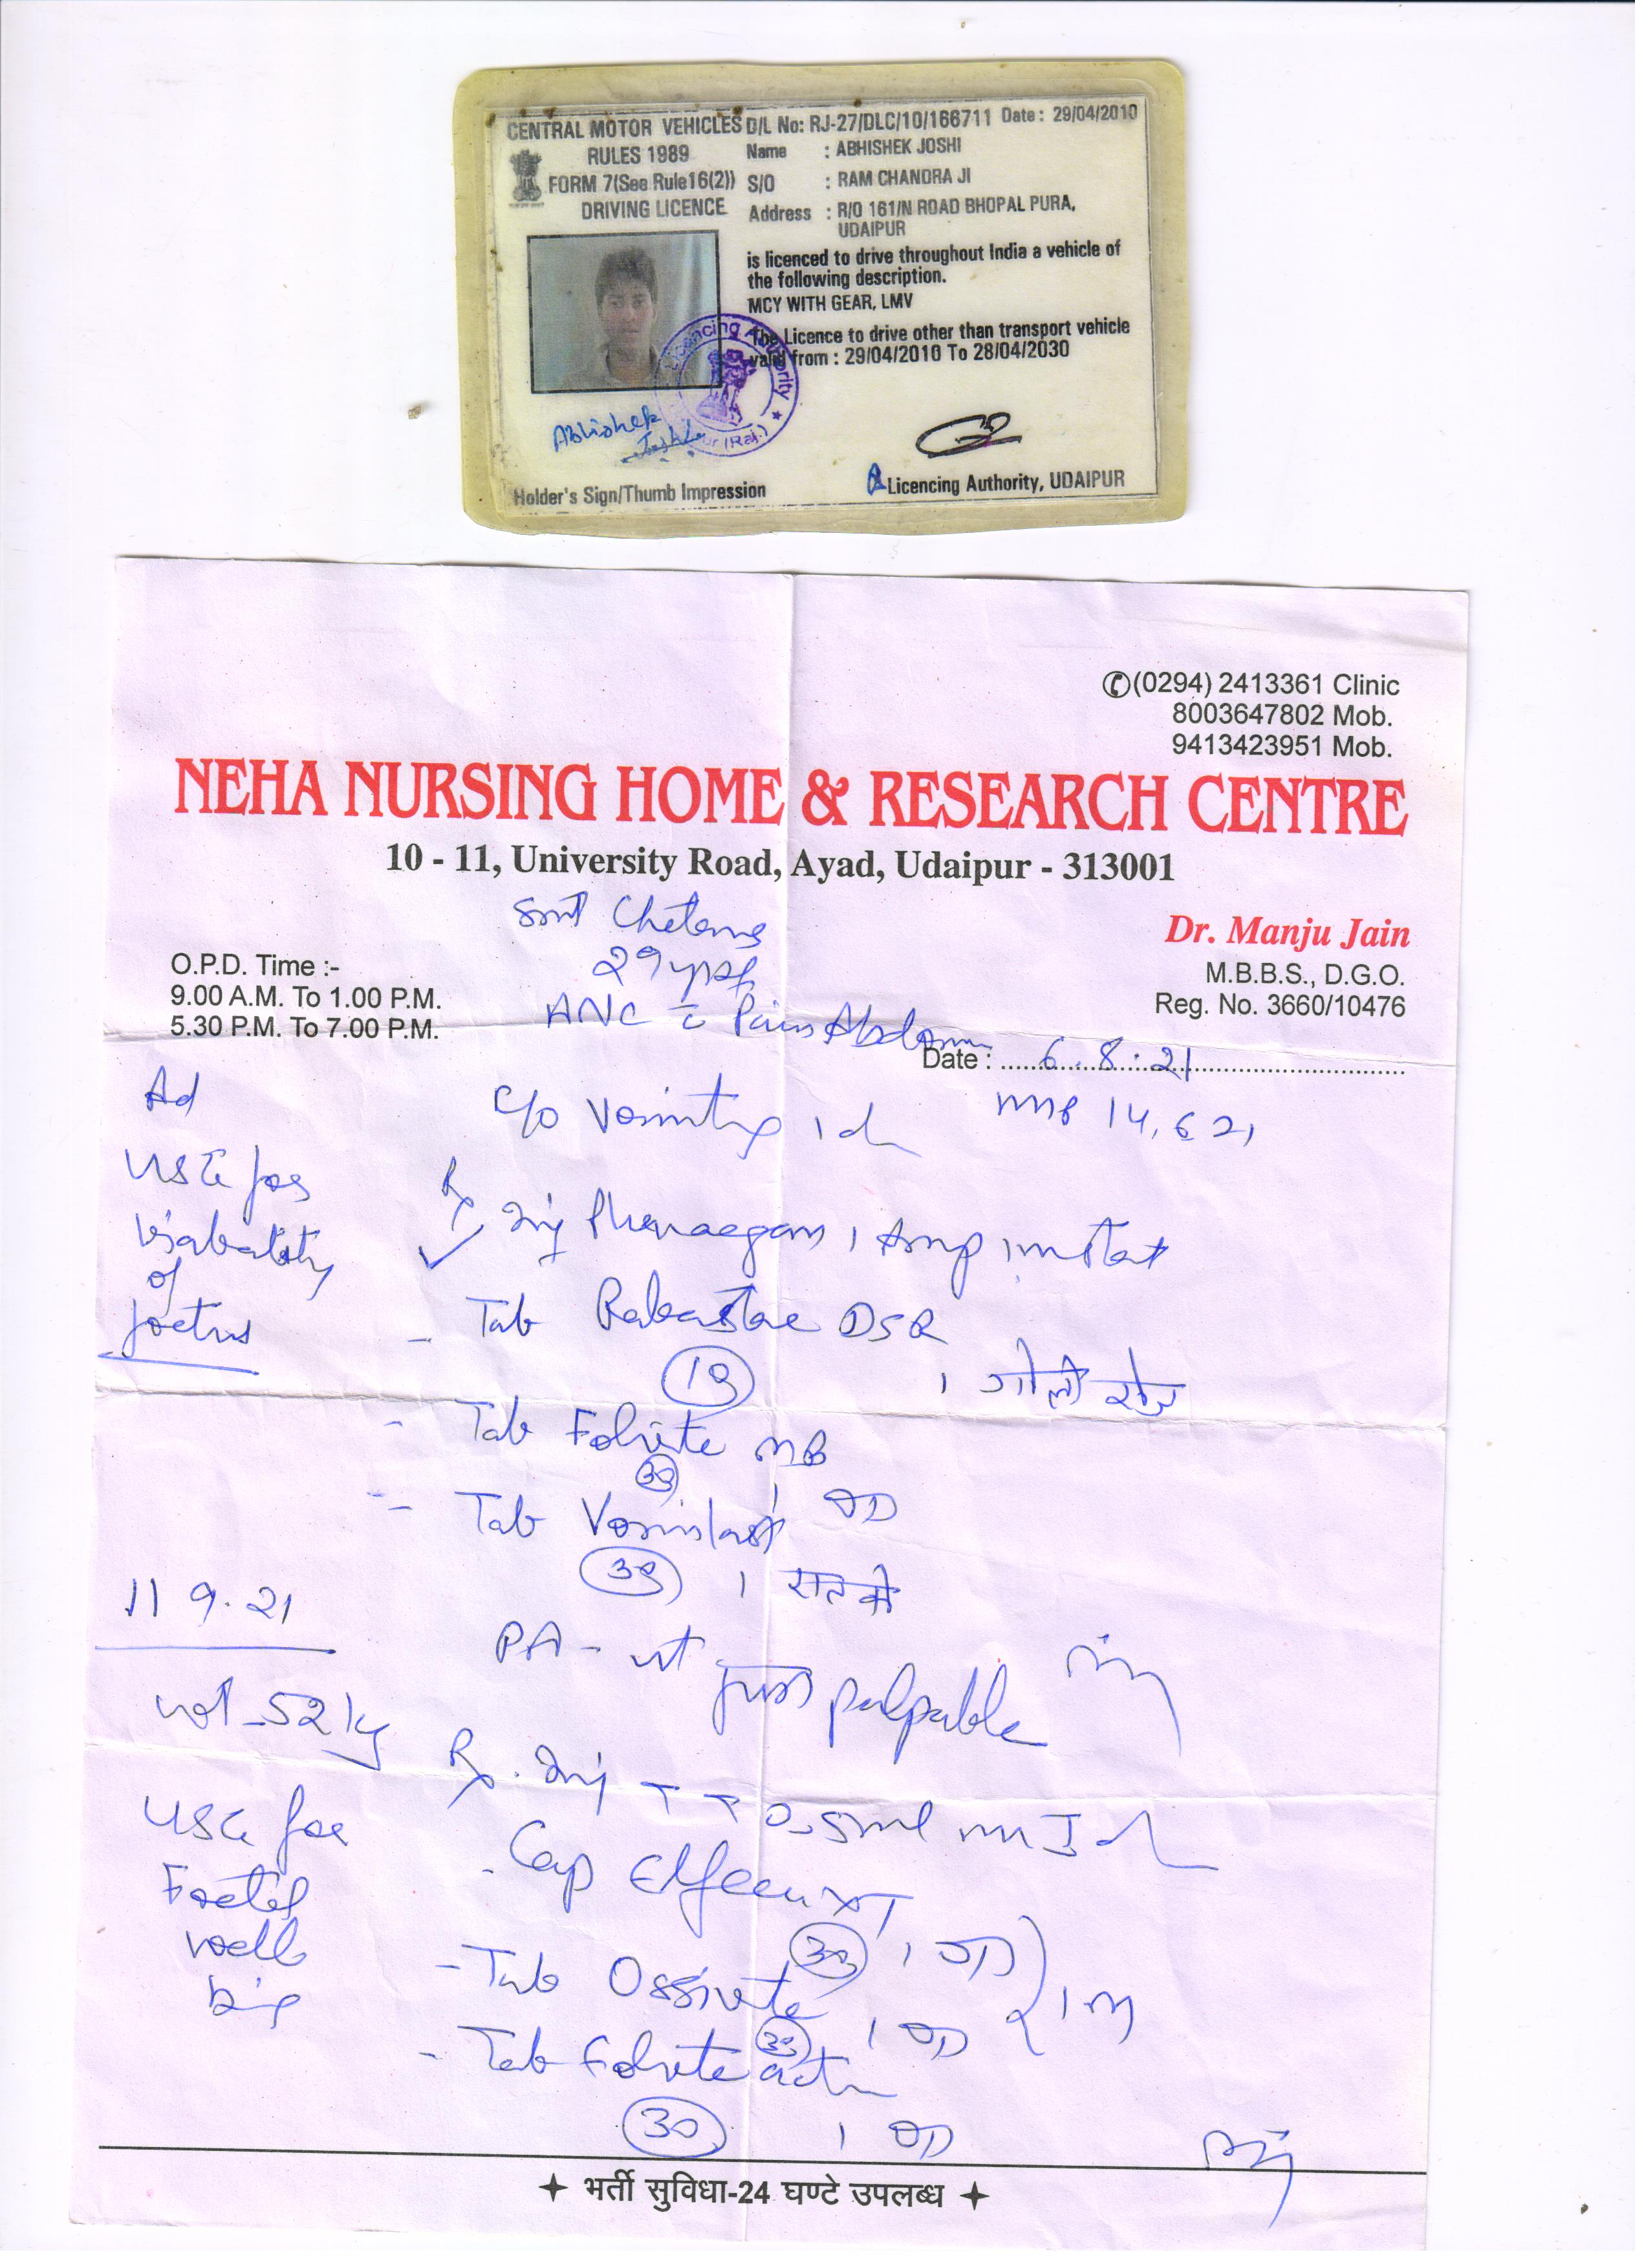 CENTRAL MOTOR VEHICLES
RULES 1989
FORM 7(See Rule16(2))
DRIVING LICENCE
D/L No: RJ-27/DLC/10/166711 Date: 29/04/2010
Name : ABHISHEK JOSHI
S/O : RAM CHANDRA JI
Address : R/O 161/N ROAD BHOPAL PURA,
UDAIPUR
is licenced to drive throughout India a vehicle of
the following description.
MCY WITH GEAR, LMV
The Licence to drive other than transport vehicle
valid from : 29/04/2010 To 28/04/2030
Licencing Authority
(Raj.)
Abhishek
Joshi
Holder's Sign/Thumb Impression
Licencing Authority, UDAIPUR
(0294) 2413361 Clinic
8003647802 Mob.
9413423951 Mob.
NEHA NURSING HOME & RESEARCH CENTRE
10 - 11, University Road, Ayad, Udaipur - 313001
Smt Chetana
29
ANC c Pain Abdomen
Dr. Manju Jain
M.B.B.S., D.G.O.
Reg. No. 3660/10476
O.P.D. Time :-
9.00 A.M. To 1.00 P.M.
5.30 P.M. To 7.00 P.M.
Date : 6.8.21
Ad
USG for
viability
of
foetus
c/o Vomiting
14.6.21
Rx
Inj Phenergan 1 Amp im stat
- Tab DSR
10
1 गोली रोज
- Tab Folvite MB
30
1 OD
- Tab
30 1 रात को
11 9.21
PA - ut just palpable
wt - 52 kg
USG for
Foetal
well
Rx. Inj T T 0.5ml im
- Cap XT
30 1 OD
- Tab
30 1 OD
- Tab Folvite
30 1 OD
भर्ती सुविधा-24 घण्टे उपलब्ध